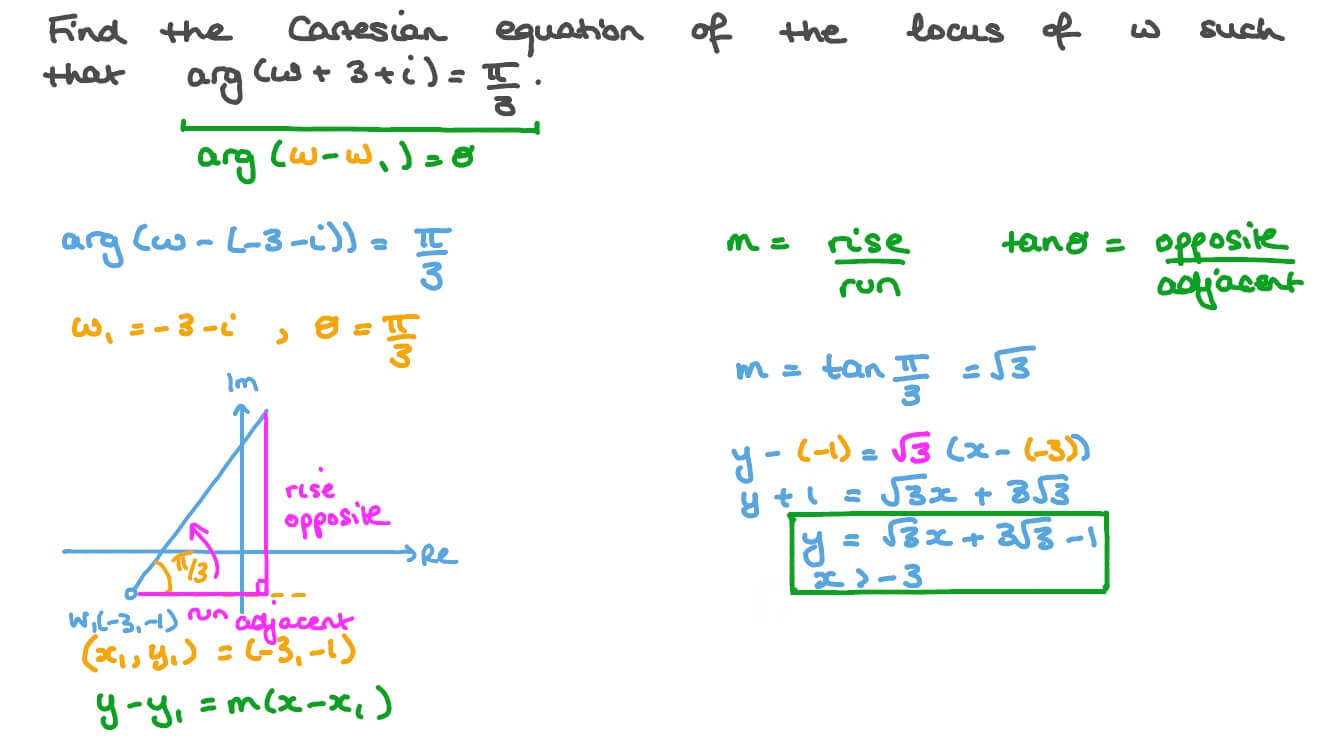 Find the Cartesian equation of the locus of ω such
that arg(ω + 3 + i) = π/3.
arg(ω - ω₁) = θ
arg(ω - (-3 - i)) = π/3
ω₁ = -3 - i , θ = π/3
Im
rise
opposite
Re
π/3
W₁(-3, -1) run adjacent
(x₁, y₁) = (-3, -1)
y - y₁ = m(x - x₁)
m = rise/run tanθ = opposite/adjacent
m = tan π/3 = √3
y - (-1) = √3 (x - (-3))
y + 1 = √3x + 3√3
y = √3x + 3√3 - 1
x > -3